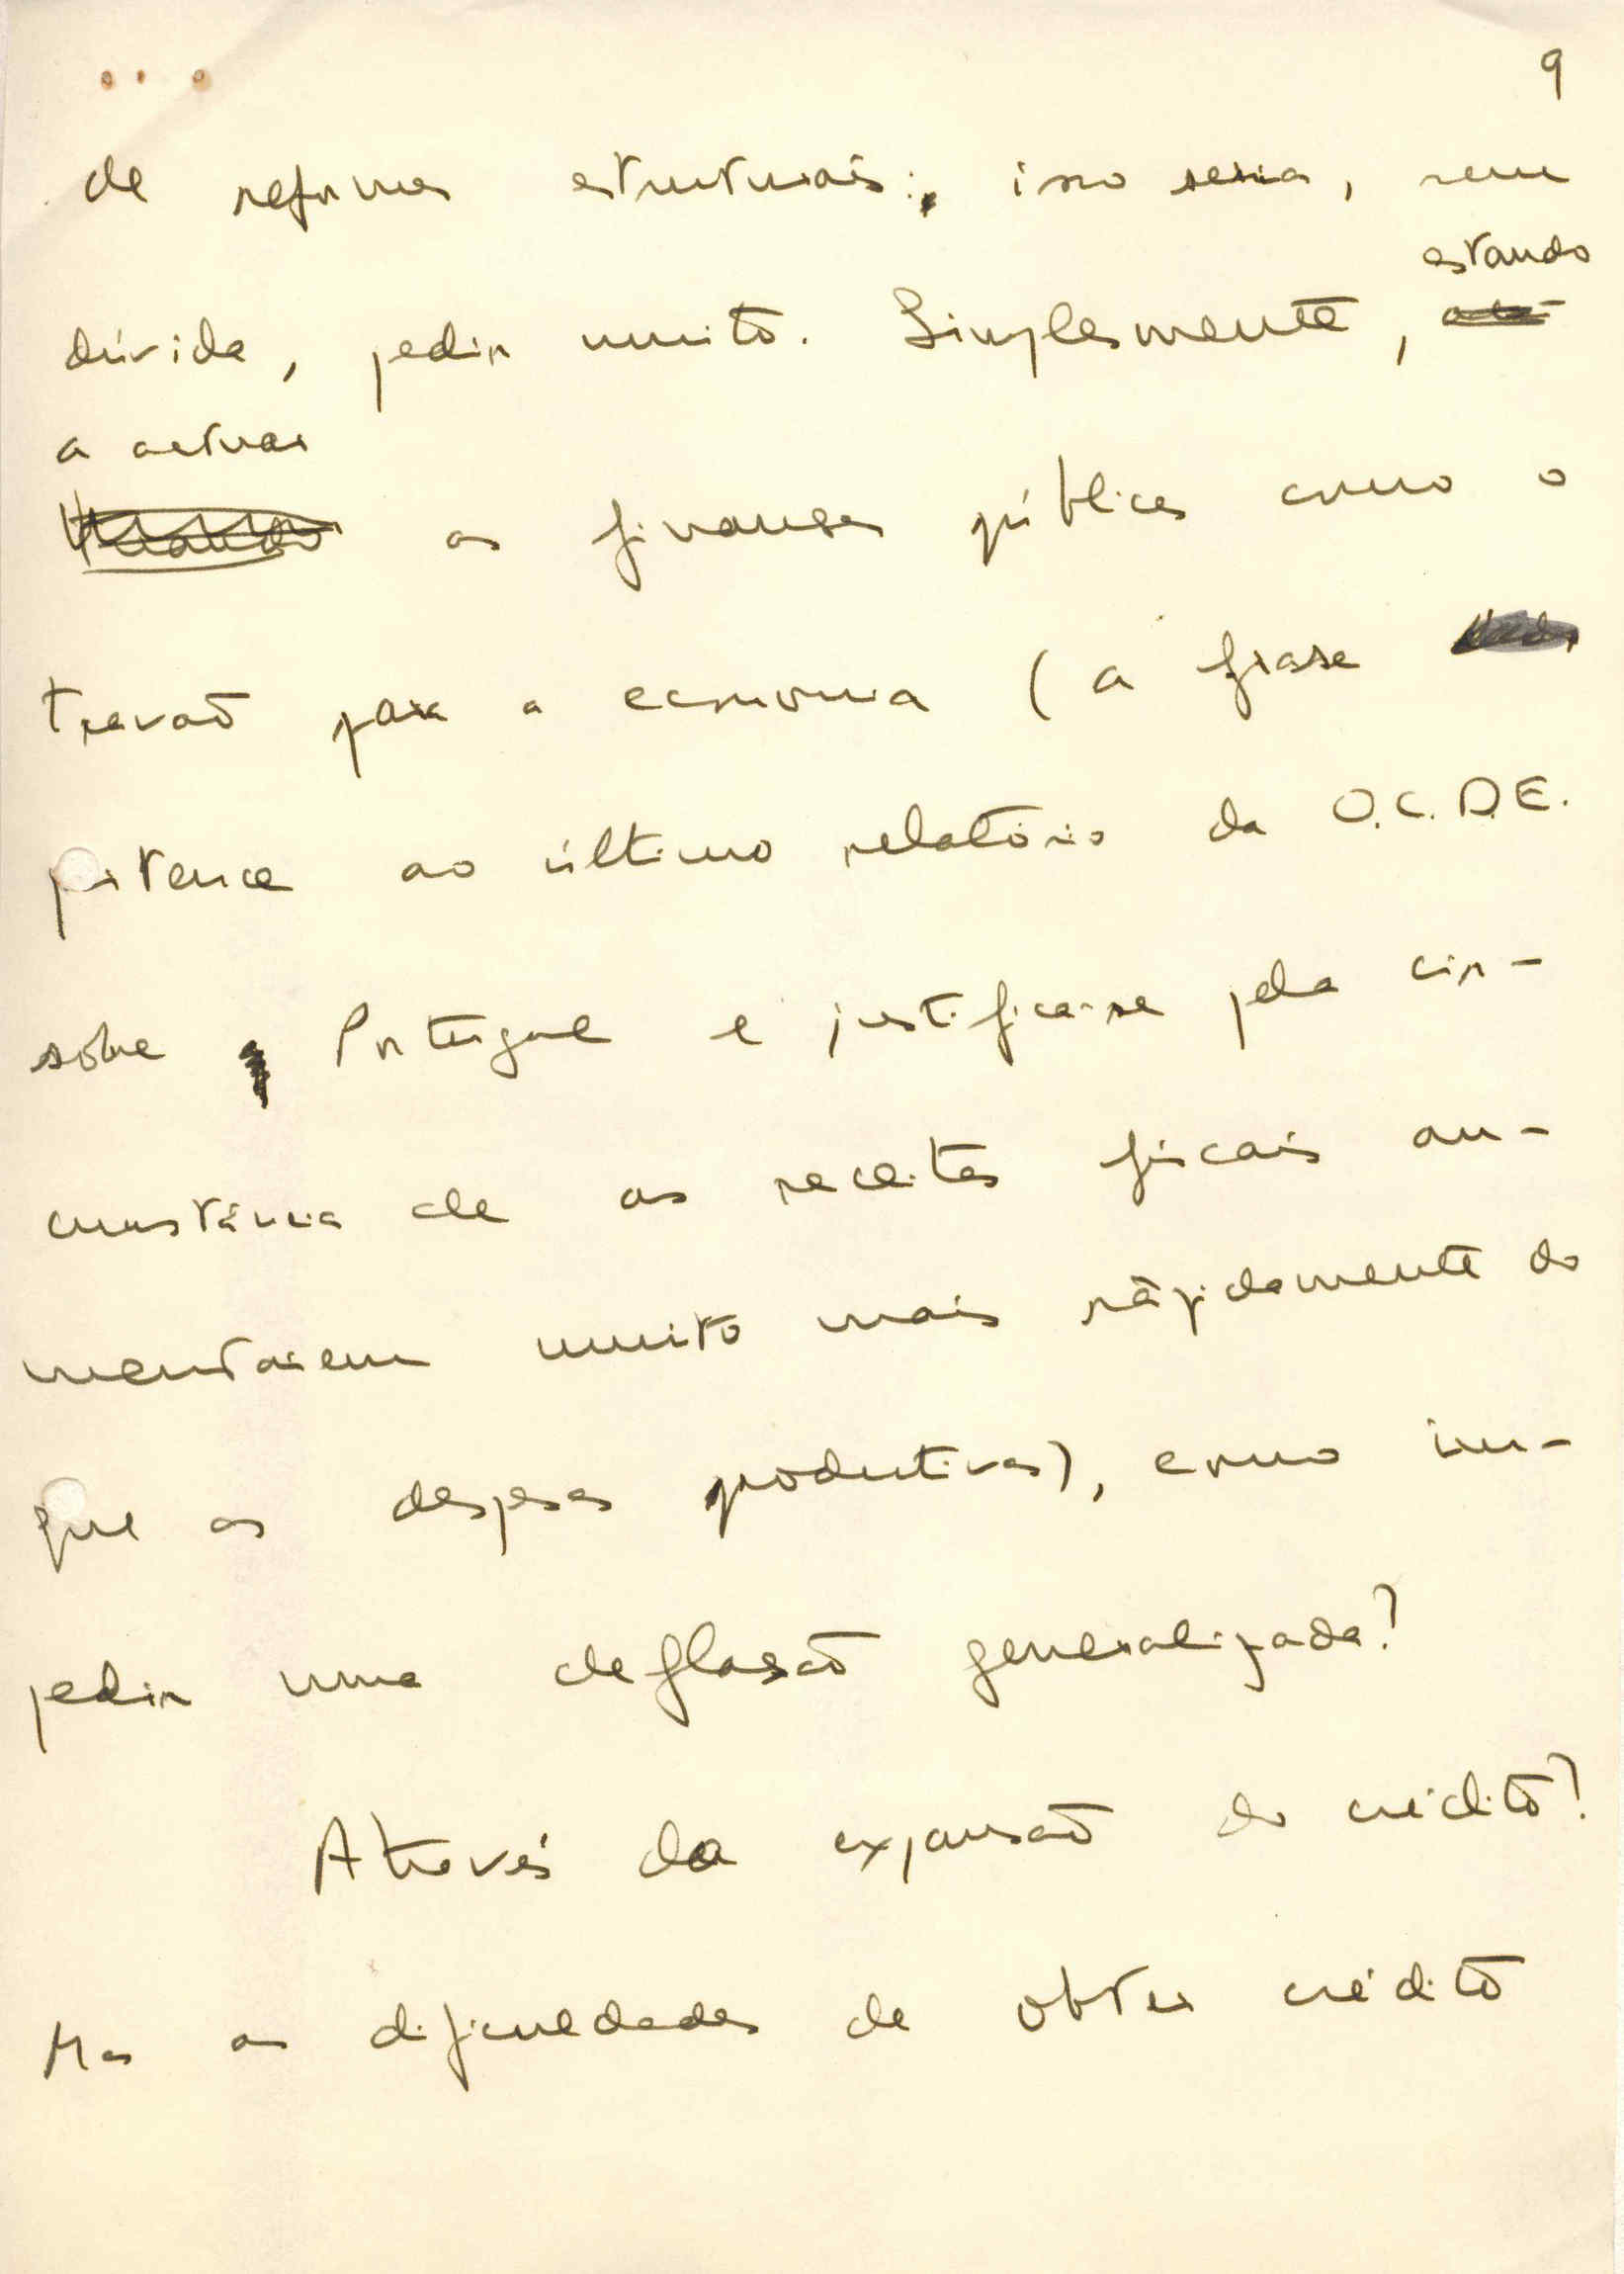 9
de reformas estruturais; isso seria, sem
estando
dúvida, pedir muito. Simplesmente,
a actuar
as finanças públicas como o
travão para a economia (a frase
pertence ao último relatório da O.C.D.E.
sôbre Portugal e justifica-se pela cir-
cunstância de as receitas fiscais au-
mentarem muito mais ràpidamente do
que as despesas produtivas), como im-
pedir uma deflação generalizada?
Através da expansão do crédito?
Mas as dificuldades de obter crédito